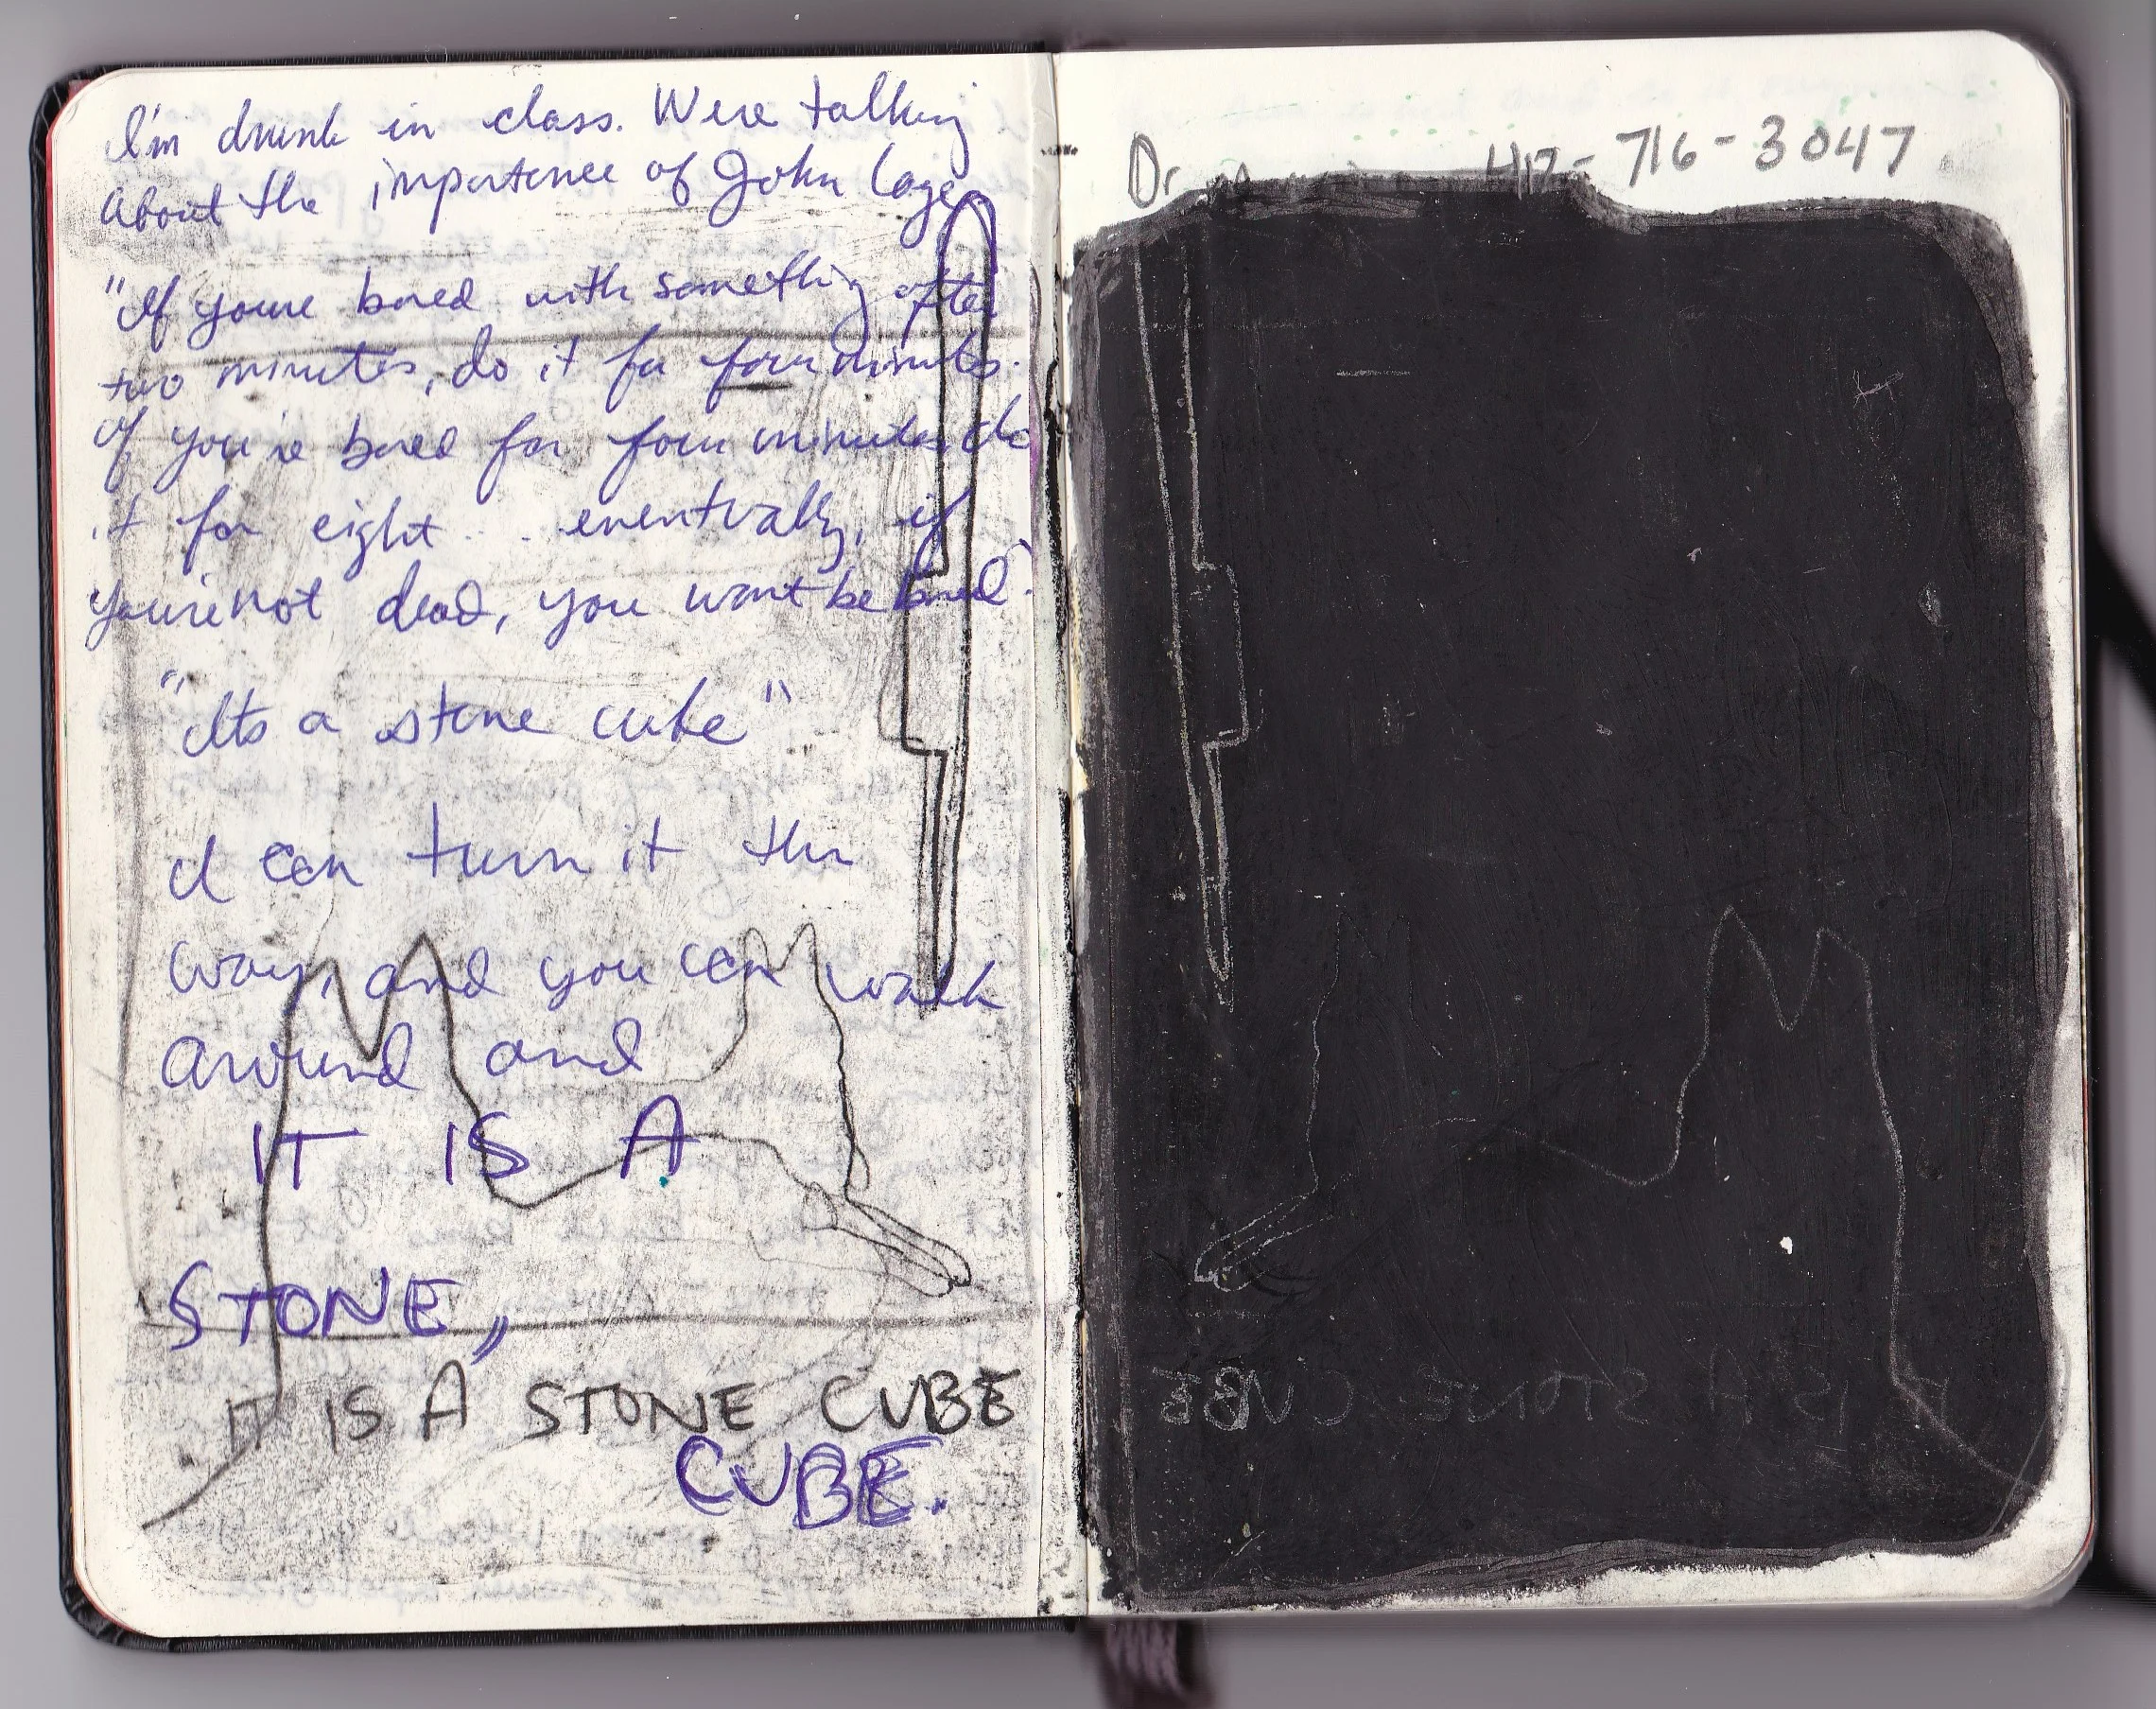 I'm drunk in class. Were talking
about the importance of John Cage
"If youre bored with something after
two minutes, do it for four minutes.
If you're bored for four minutes do
it for eight... eventually, if
you're not dead, you wont be bored."
"Its a stone cube"
I can turn it this
way, and you can walk
around and
IT IS A
STONE,,
IT IS A STONE CUBE
CUBE.
Dr 417-716-3047
IT IS A STONE CUBE